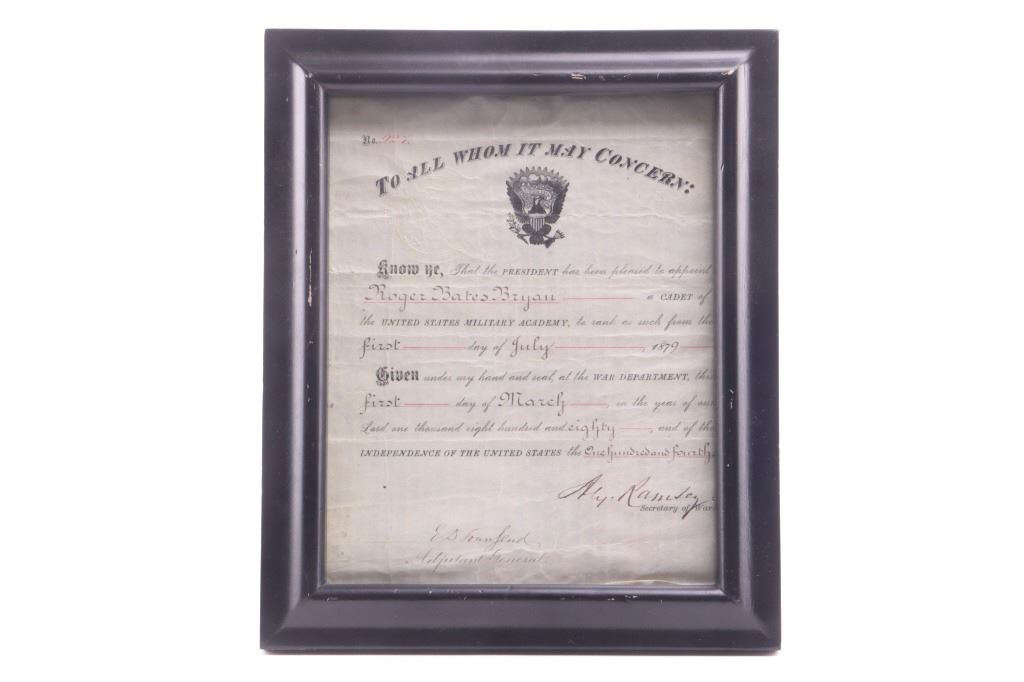 No. 927.
TO ALL WHOM IT MAY CONCERN:
Know ye, That the PRESIDENT has been pleased to appoint
Roger Bates Bryan a CADET of
the UNITED STATES MILITARY ACADEMY, to rank as such from the
first day of July, 1879
Given under my hand and seal, at the WAR DEPARTMENT, this
first day of March, in the year of our
Lord one thousand eight hundred and eighty, and of the
INDEPENDENCE OF THE UNITED STATES the One hundred and fourth.
Alex. Ramsey
Secretary of War
E D Townsend
Adjutant General.